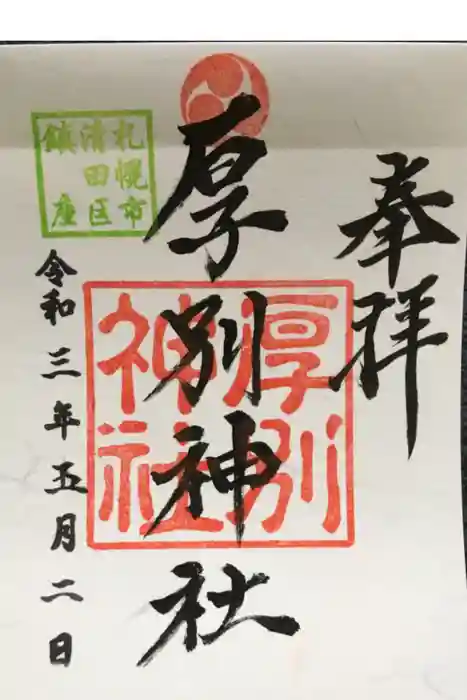 奉拝
厚別神社
厚別
神社
札幌市
清田区
鎮座
令和三年五月二日